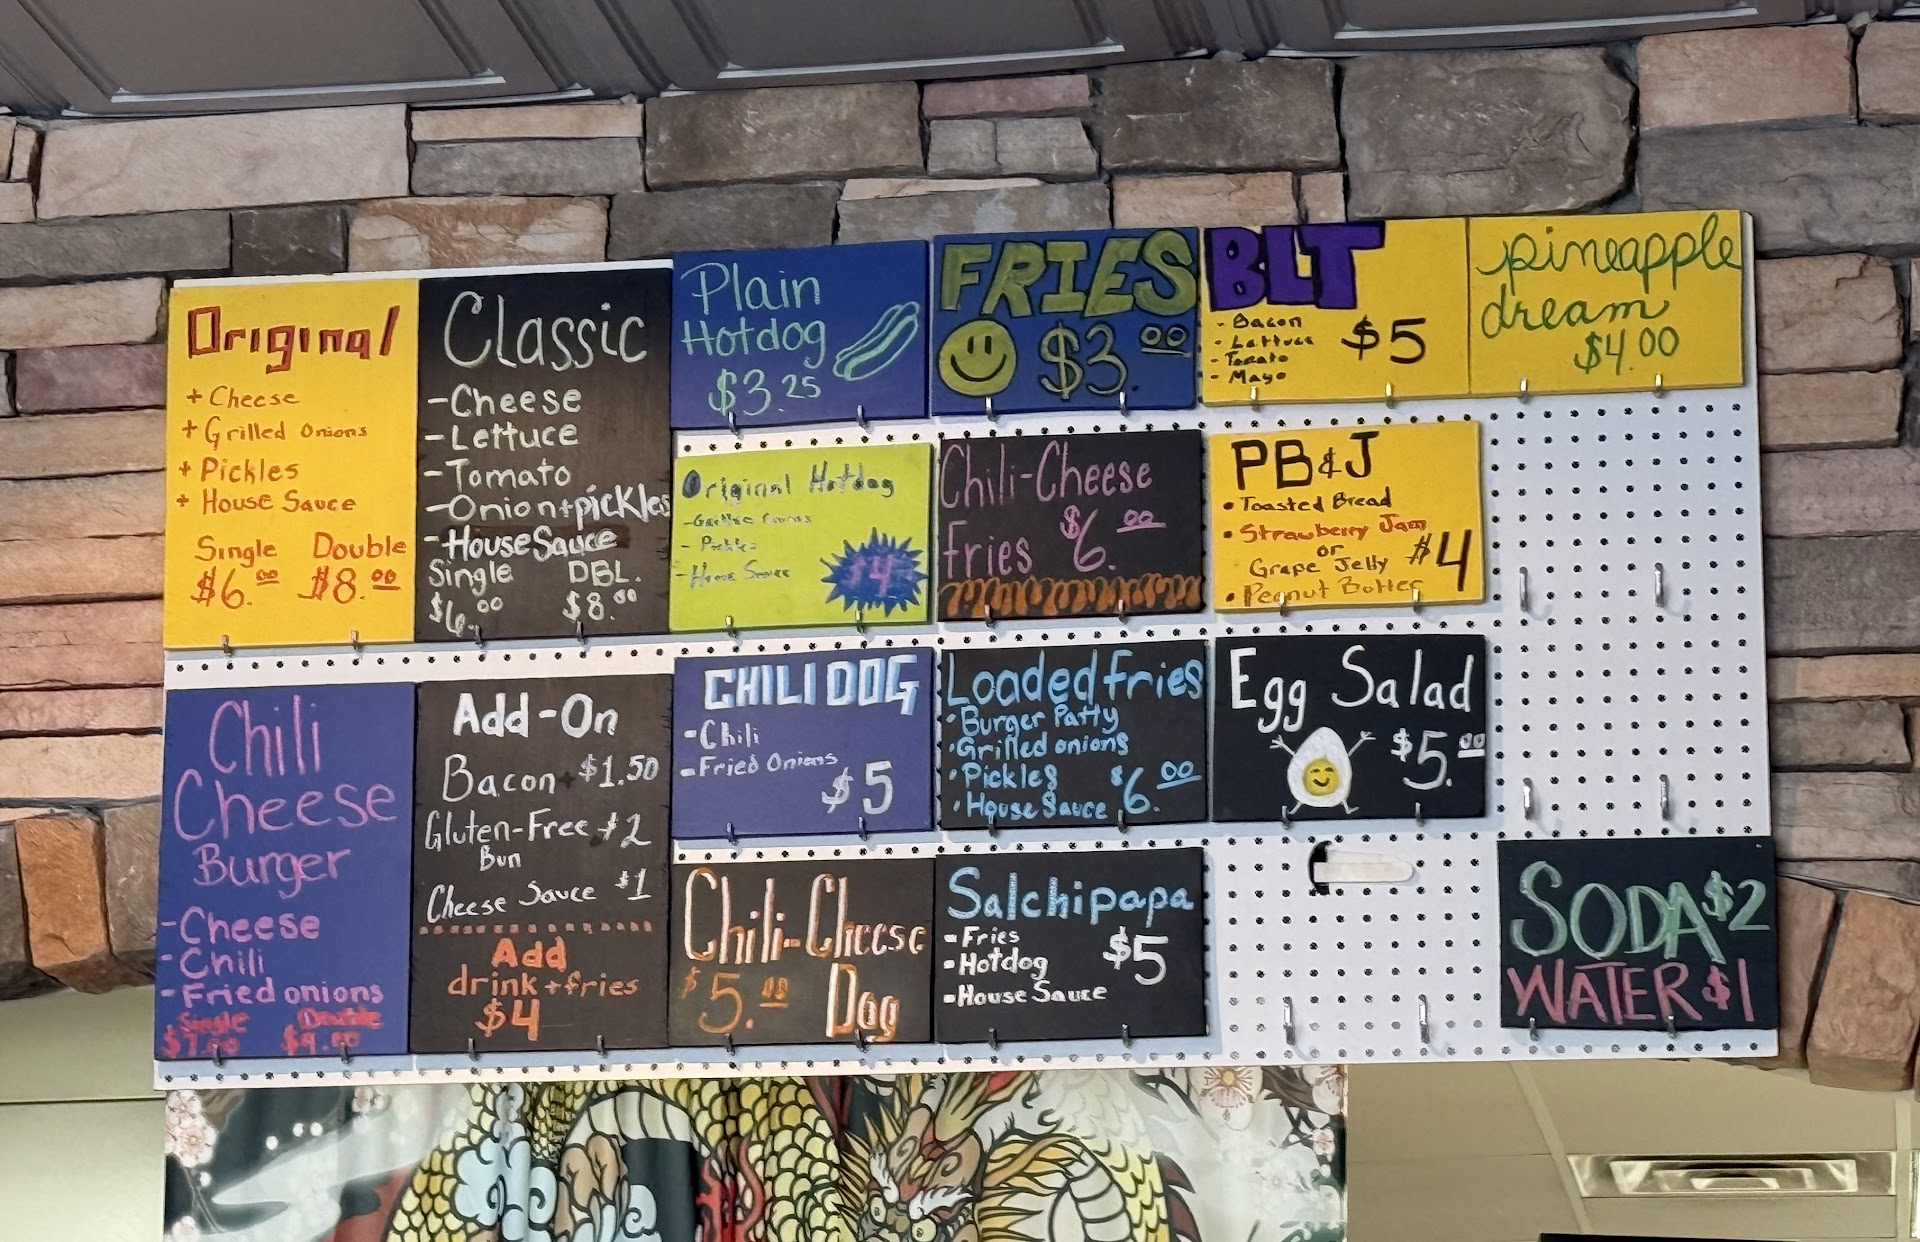 Original
+ Cheese
+ Grilled Onions
+ Pickles
+ House Sauce
Single Double
$6.00 $8.00
Classic
-Cheese
-Lettuce
-Tomato
-Onion+pickles
-House Sauce
Single DBL.
$6.00 $8.00
Plain
Hotdog
$3.25
FRIES
$3.00
BLT
- Bacon
- Lettuce
- Tomato
- Mayo
$5
pineapple
dream
$4.00
Original Hotdog
-Grilled Onions
- Pickles
-House Sauce
$4
Chili-Cheese
Fries $6.00
PB&J
• Toasted Bread
• Strawberry Jam
or
Grape Jelly
• Peanut Butter
$4
Chili
Cheese
Burger
-Cheese
-Chili
-Fried onions
Single Double
$7.00 $9.00
Add-On
Bacon $1.50
Gluten-Free $2
Bun
Cheese Sauce $1
Add
drink+fries
$4
CHILI DOG
-Chili
-Fried Onions
$5
Loaded fries
• Burger Patty
• Grilled onions
• Pickles
• House Sauce
$6.00
Egg Salad
$5.00
Chili-Cheese
$5.00 Dog
Salchipapa
-Fries
-Hotdog
-House Sauce
$5
SODA $2
WATER $1